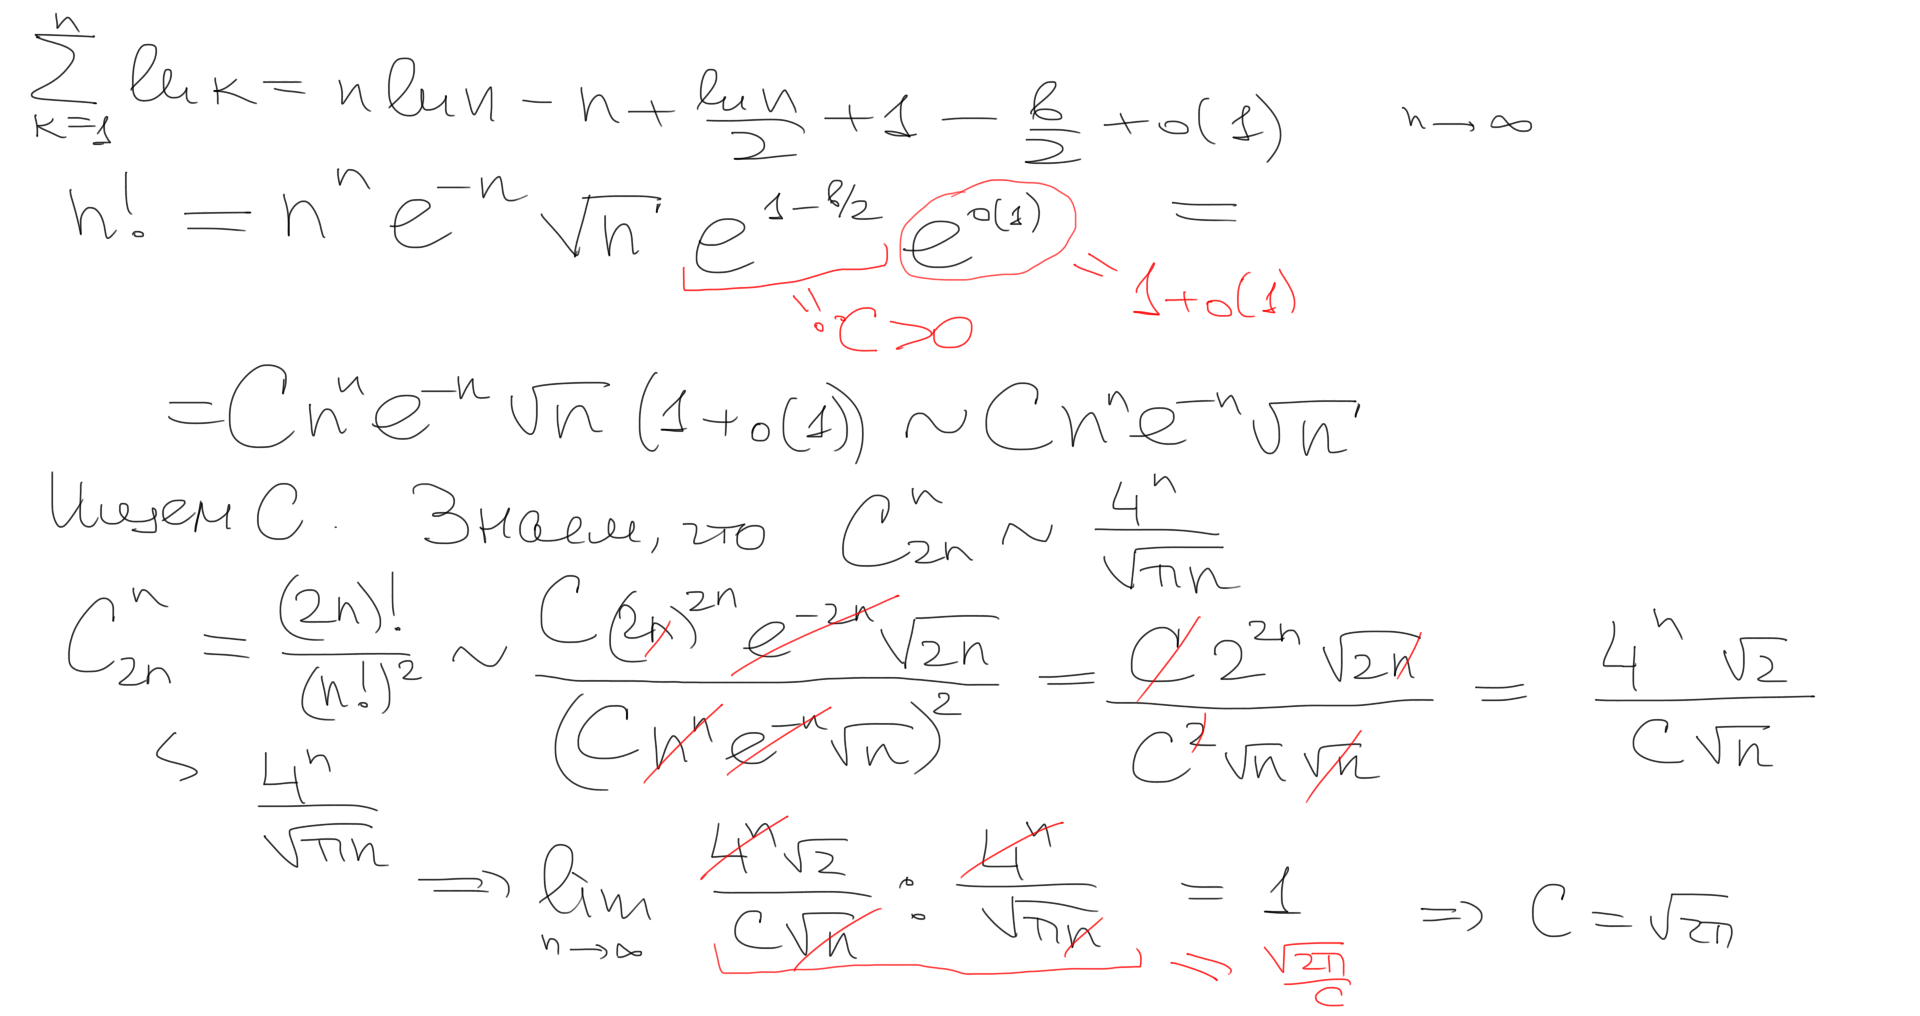 $\sum_{k=1}^{n} \ln k = n \ln n - n + \frac{\ln n}{2} + 1 - \frac{b}{2} + o(1) \quad n \to \infty$
$n! = n^n e^{-n} \sqrt{n} \, e^{1-b/2} \, e^{o(1)} =$
$=: C > 0 \quad = 1 + o(1)$
$= C n^n e^{-n} \sqrt{n} (1 + o(1)) \sim C n^n e^{-n} \sqrt{n}$
Ищем C. Знаем, что $C_{2n}^{n} \sim \frac{4^n}{\sqrt{\pi n}}$
$C_{2n}^{n} = \frac{(2n)!}{(n!)^2} \sim \frac{C (2n)^{2n} e^{-2n} \sqrt{2n}}{(C n^n e^{-n} \sqrt{n})^2} = \frac{C \, 2^{2n} \sqrt{2n}}{C^2 \sqrt{n} \sqrt{n}} = \frac{4^n \sqrt{2}}{C \sqrt{n}}$
$\sim \frac{4^n}{\sqrt{\pi n}}$
$\Rightarrow \lim_{n \to \infty} \frac{4^n \sqrt{2}}{C \sqrt{n}} : \frac{4^n}{\sqrt{\pi n}} = 1 \Rightarrow C = \sqrt{2\pi}$
$= \frac{\sqrt{2\pi}}{C}$